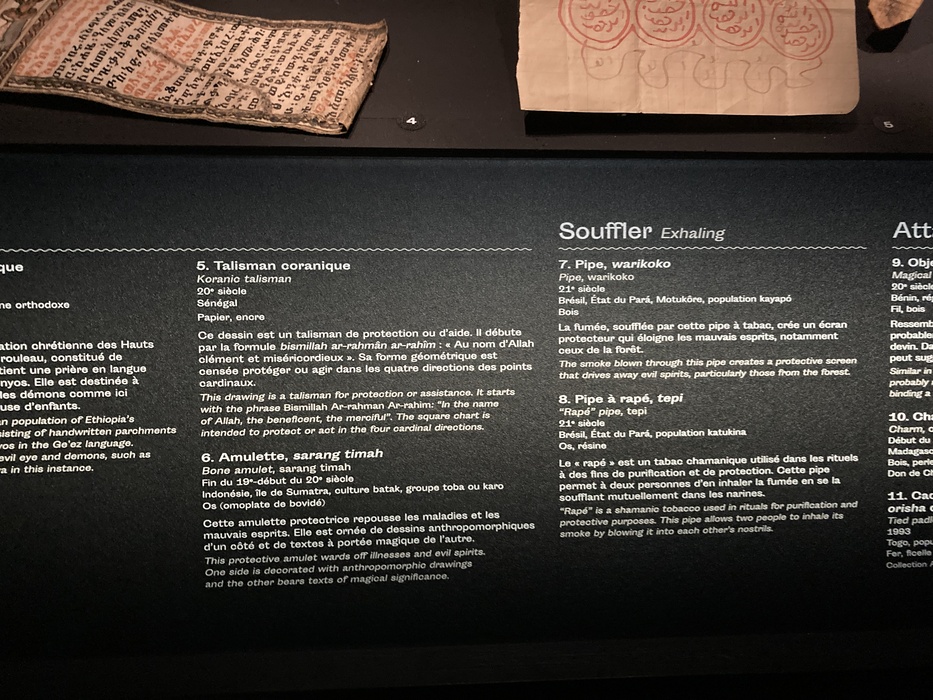 4
5
que
ne orthodoxe
ation chrétienne des Hauts
rouleau, constitué de
tient une prière en langue
nyos. Elle est destinée à
les démons comme ici
use d'enfants.
n population of Ethiopia's
sisting of handwritten parchments
yos in the Ge'ez language.
evil eye and demons, such as
a in this instance.
5. Talisman coranique
Koranic talisman
20e siècle
Sénégal
Papier, encre
Ce dessin est un talisman de protection ou d'aide. Il débute
par la formule bismillah ar-rahmân ar-rahîm : « Au nom d'Allah
clément et miséricordieux ». Sa forme géométrique est
censée protéger ou agir dans les quatre directions des points
cardinaux.
This drawing is a talisman for protection or assistance. It starts
with the phrase Bismillah Ar-rahman Ar-rahim: "In the name
of Allah, the beneficent, the merciful". The square chart is
intended to protect or act in the four cardinal directions.
6. Amulette, sarang timah
Bone amulet, sarang timah
Fin du 19e-début du 20e siècle
Indonésie, île de Sumatra, culture batak, groupe toba ou karo
Os (omoplate de bovidé)
Cette amulette protectrice repousse les maladies et les
mauvais esprits. Elle est ornée de dessins anthropomorphiques
d'un côté et de textes à portée magique de l'autre.
This protective amulet wards off illnesses and evil spirits.
One side is decorated with anthropomorphic drawings
and the other bears texts of magical significance.
Souffler Exhaling
7. Pipe, warikoko
Pipe, warikoko
21e siècle
Brésil, État du Pará, Motukôre, population kayapó
Bois
La fumée, soufflée par cette pipe à tabac, crée un écran
protecteur qui éloigne les mauvais esprits, notamment
ceux de la forêt.
The smoke blown through this pipe creates a protective screen
that drives away evil spirits, particularly those from the forest.
8. Pipe à rapé, tepi
"Rapé" pipe, tepi
21e siècle
Brésil, État du Pará, population katukina
Os, résine
Le « rapé » est un tabac chamanique utilisé dans les rituels
à des fins de purification et de protection. Cette pipe
permet à deux personnes d'en inhaler la fumée en se la
soufflant mutuellement dans les narines.
"Rapé" is a shamanic tobacco used in rituals for purification and
protective purposes. This pipe allows two people to inhale its
smoke by blowing it into each other's nostrils.
Att
9. Obje
Magical
20e siècle
Bénin, ré
Fil, bois
Ressemb
probable
devin. Da
peut sug
Similar in
probably
binding a
10. Cha
Charm, c
Début du
Madagasc
Bois, perle
Don de Ch
11. Cad
orisha o
Tied padl
1993
Togo, popu
Fer, ficelle
Collection A